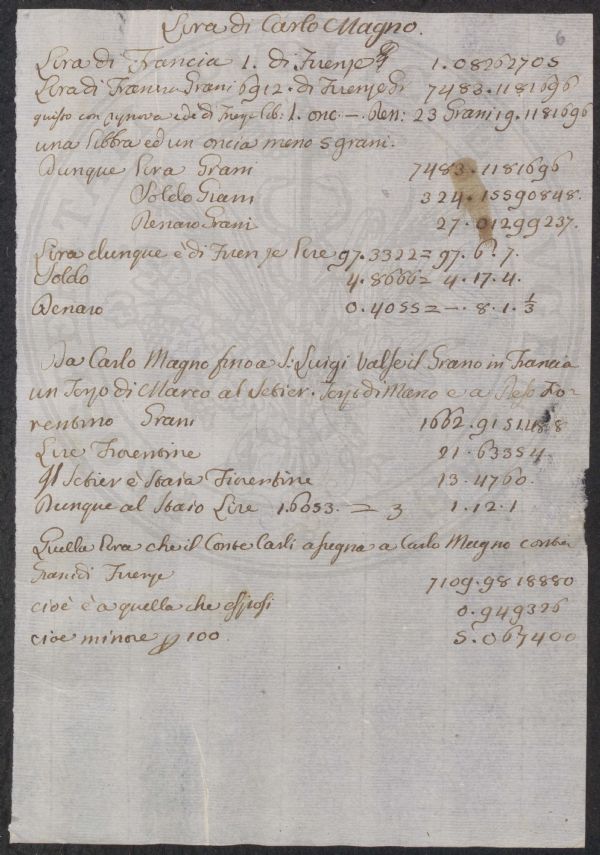 Lira di Carlo Magno.
6
Lira di Francia 1. di Firenze 1.08262705
Lira di Francia Grani 6912. di Firenze Gi 7483.1181696
questo con rinova ed e di Firenze lib: 1. onc. —. Den: 23 Grani 19.1181696
una libbra ed un oncia meno 5 grani.
Dunque Lira Grani 7483.1181696
Soldo Grani 324.15590848.
Denaro Grani 27.01299237.
Lira dunque è di Firenze Lire 97.3322 = 97.6.7.
Soldo 4.8666 = 4.17.4.
Denaro 0.4055 = —.8.1.⅓
Da Carlo Magno fino a S. Luigi valse il Grano in Francia
un Terzo di Marco al Setier. Terzo di Marco e a Peso Fio-
rentino Grani 1662.9151488
Lire Fiorentine 21.63354
Il Setier è Staia Fiorentine 13.4760.
Dunque al Staio Lire 1.6053. = 3 1.12.1
Quella Lira che il Conte Carli assegna a Carlo Magno
Grani di Firenze 7109.9818880
cioè è a quella che esposi 0.949326
cioè minore p 100. 5.067400